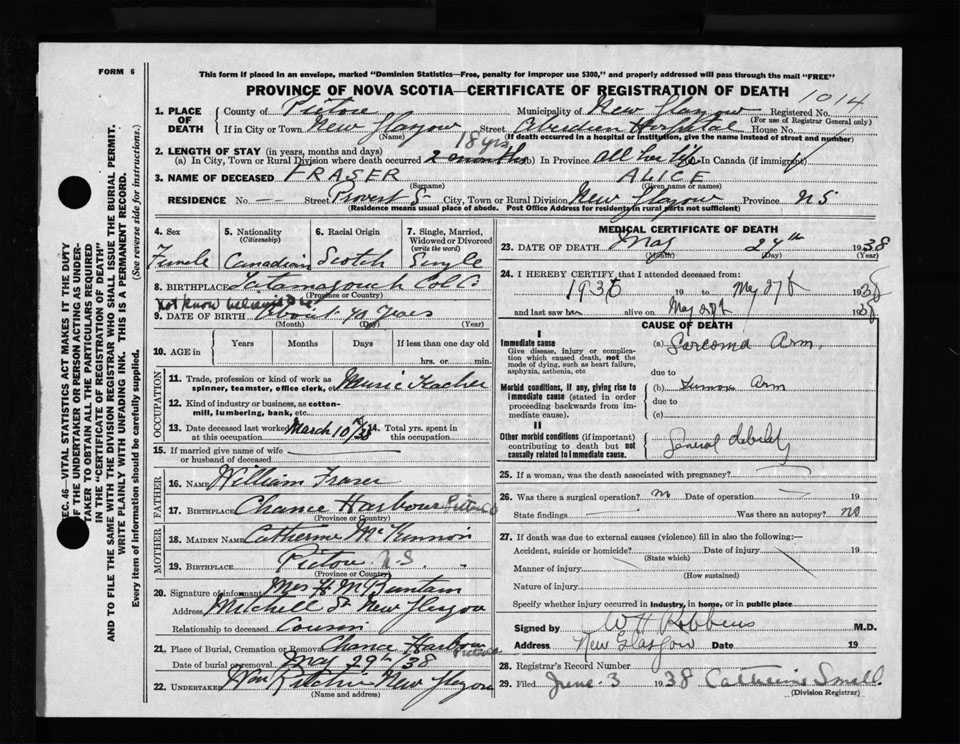 FORM 6
This form if placed in an envelope, marked "Dominion Statistics—Free, penalty for improper use $300," and properly addressed will pass through the mail "FREE"
PROVINCE OF NOVA SCOTIA—CERTIFICATE OF REGISTRATION OF DEATH
1014
1. PLACE OF DEATH County of Pictou Municipality of New Glasgow Registered No.
(For use of Registrar General only)
If in City or Town New Glasgow Street Aberdeen Hospital House No.
(If death occurred in a hospital or institution, give the name instead of street and number)
2. LENGTH OF STAY (in years, months and days) 18 yrs
(a) In City, Town or Rural Division where death occurred 2 months (b) In Province All her life In Canada (if immigrant)
3. NAME OF DECEASED FRASER ALICE
(Surname) (Given name or names)
RESIDENCE No. — Street Provost S City, Town or Rural Division New Glasgow Province N S
(Name) (Residence means usual place of abode. Post Office Address for residents in rural parts not sufficient)
4. Sex Female
5. Nationality (Citizenship) Canadian
6. Racial Origin Scotch
7. Single, Married, Widowed or Divorced (write the word) Single
8. BIRTHPLACE Tatamagouch Col Co
(Province or Country)
not know
9. DATE OF BIRTH About 40 years
(Month) (Day) (Year)
10. AGE in Years Months Days If less than one day old
hrs. or min.
OCCUPATION
11. Trade, profession or kind of work as spinner, teamster, office clerk, etc. Music Teacher
12. Kind of industry or business, as cotton-mill, lumbering, bank, etc.
13. Date deceased last worked at this occupation March 10/38 14. Total yrs. spent in this occupation
15. If married give name of wife or husband of deceased
FATHER
16. NAME William Fraser
17. BIRTHPLACE Chance Harbour Pictou Co
(Province or Country)
MOTHER
18. MAIDEN NAME Catherine McKinnon
19. BIRTHPLACE Pictou N.S.
(Province or Country)
20. Signature of informant Mrs H.
Address Mitchell St New Glasgow
Relationship to deceased Cousin
21. Place of Burial, Cremation or Removal Chance Harbour Pictou
Date of burial or removal May 29th/38
22. UNDERTAKER Wm Ritchie New Glasgow
(Name and address)
MEDICAL CERTIFICATE OF DEATH
23. DATE OF DEATH May 27th 1938
(Month) (Day) (Year)
24. I HEREBY CERTIFY that I attended deceased from:
1936 19 to May 27th 1938
and last saw her alive on May 1938
CAUSE OF DEATH
I
Immediate cause
Give disease, injury or complication which caused death, not the mode of dying, such as heart failure, asphyxia, asthenia, etc
(a) Sarcoma Arm.
due to
Morbid conditions, if any, giving rise to immediate cause (stated in order proceeding backwards from immediate cause).
(b) Tumour Arm
due to
(c)
II
Other morbid conditions (if important) contributing to death but not causally related to immediate cause.
General debility
25. If a woman, was the death associated with pregnancy?
26. Was there a surgical operation? no Date of operation 19
State findings Was there an autopsy? no
27. If death was due to external causes (violence) fill in also the following:—
Accident, suicide or homicide? Date of injury 19
(State which)
Manner of injury
(How sustained)
Nature of injury
Specify whether injury occurred in industry, in home, or in public place
Signed by W H Robbins M.D.
Address New Glasgow Date 19
28. Registrar's Record Number
29. Filed June 3 1938 Catherine Small.
(Division Registrar)
SEC. 46—VITAL STATISTICS ACT MAKES IT THE DUTY
OF THE UNDERTAKER OR PERSON ACTING AS UNDERTAKER TO OBTAIN ALL THE PARTICULARS REQUIRED
IN THE "CERTIFICATE OF REGISTRATION OF DEATH"
AND TO FILE THE SAME WITH THE DIVISION REGISTRAR WHO SHALL ISSUE THE BURIAL PERMIT.
WRITE PLAINLY WITH UNFADING INK. THIS IS A PERMANENT RECORD.
Every item of information should be carefully supplied. (See reverse side for instructions.)